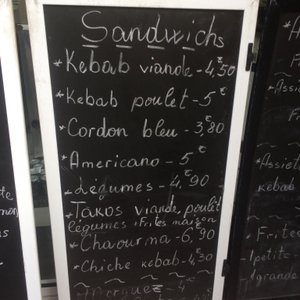 Sandwichs
*Kebab viande-4,50€
*Kebab poulet-5€
*Cordon bleu-3,80€
*Americano-5€
*Légumes-4,90€
*Takos viande poulet
légumes+frites maison
*Chaourma-6,90
*Chiche kebab-4,50
Assie
kebab
Frites
1petite-
1grande